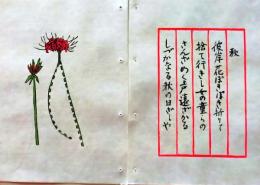 秋
彼岸花ぽきぽき折りて
捨て行きし女の童らの
さんざめく声遠ざかる
しづかなる秋の日ざしや